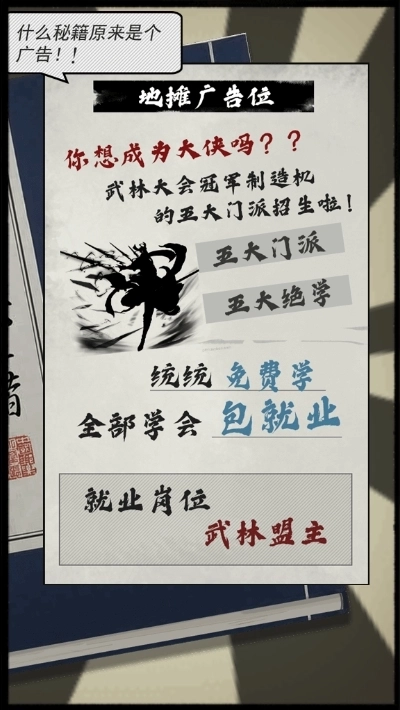 什么秘籍原来是个
广告！！
地摊广告位
你想成为大侠吗？？
武林大会冠军制造机
的五大门派招生啦！
五大门派
五大绝学
统统 免费学
全部学会 包就业
就业岗位
武林盟主